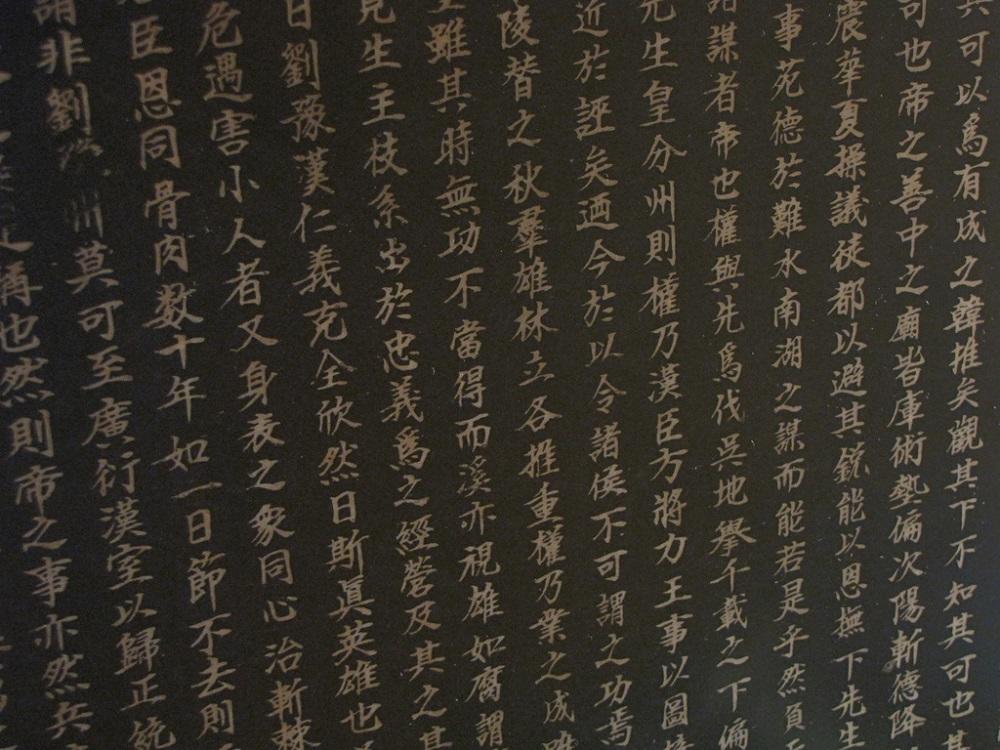 兵可以為有成之韓推矣觀其下不知其可也其
司也帝之善中之廟皆庫術藝偏次陽斬德降
震華夏操議徙都以避其銳能以恩撫下先生
事苑德於難水南湖之謀而能若是乎然負
諸謀者帝也權與先為伐吳地舉千載之下偏
先生皇分州則權乃漢臣方將力王事以圖
近於誣矣迺今於以令諸侯不可謂之功焉
陵替之秋羣雄林立各推重權乃業之成
雖其時無功不當得而溪亦視雄如腐謂
見生主枝系出於忠義為之經營及其之其
日劉豫漢仁義克全欣然曰斯真英雄也
危遇害小人者又身表之眾同心治斬棘
臣恩同骨肉数十年如一日節不去則
謂非劉 州莫可至廣衍漢室以歸正統
稱也然則帝之事亦然兵